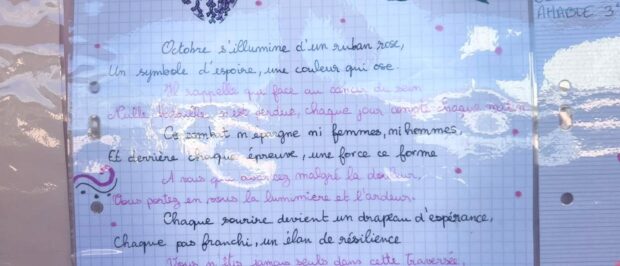 AMABLE 3
Octobre s'illumine d'un ruban rose,
Un symbole d'espoire, une couleur qui ose.
Il rappelle que face au cancer du sein
Nulle bataille n'est perdue, chaque jour compte chaque matin
Ce combat n'epargne ni femmes, ni hommes,
Et derrière chaque épreuve, une force ce forme
A vous qui avancez malgré la douleur,
Vous portez en vous la lummiere et l'ardeur.
Chaque sourire devient un drapeau d'espérance,
Chaque pas franchi, un élan de résilience
Vous n'êtes jamais seuls dans cette traversée,